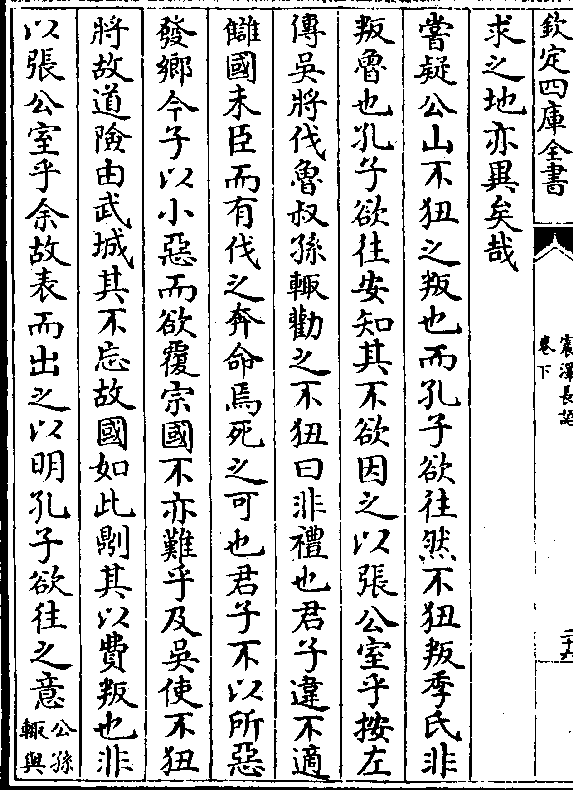 欽定四庫全書
震澤長語
卷下
求之地亦異矣哉
嘗疑公山不狃之叛也而孔子欲往然不狃叛季氏非
叛魯也孔子欲往安知其不欲因之以張公室乎按左
傳吳將伐魯叔孫輒勸之不狃曰非禮也君子違不適
讎國未臣而有伐之奔命焉死之可也君子不以所惡
發鄉今子以小惡而欲覆宗國不亦難乎及吳使不狃
將故道險由武城其不忘故國如此則其以費叛也非
以張公室乎余故表而出之以明孔子欲往之意公孫
輒與